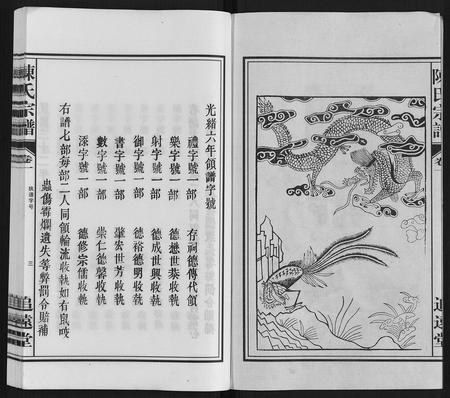 陳氏宗譜
卷一
追遠堂
光緒六年領譜字號
禮字號一部 存祠德傳代領
樂字號一部 德懋世棻收執
射字號一部 德成世興收執
御字號一部 德裕德明收執
書字號一部 肇宏世芳收執
數字號一部 崇仁德馨收執
添字號一部 德修宗儒收執
右譜七部每部二人同領輪流收執如有鼠咬
蟲傷霉爛遺失等弊罰令賠補
陳氏宗譜
卷一
執譜字号
三
追遠堂